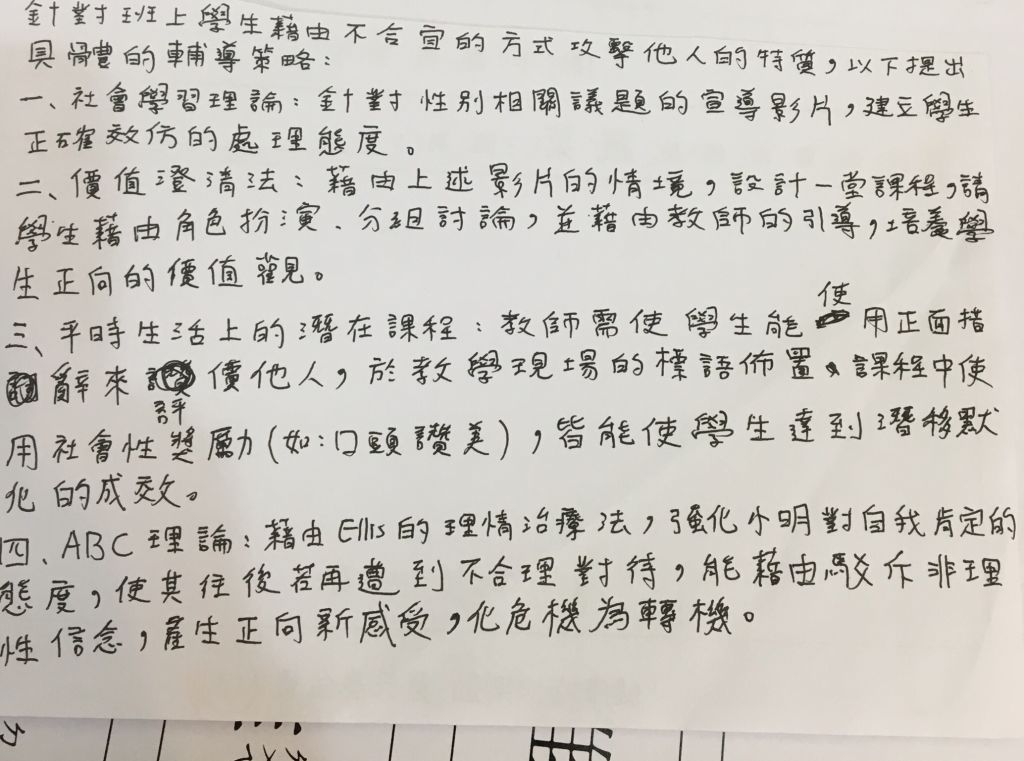 針對班上學生藉由不合宜的方式攻擊他人的特質，以下提出
具體的輔導策略：
一、社會學習理論：針對性別相關議題的宣導影片，建立學生
正確效仿的處理態度。
二、價值澄清法：藉由上述影片的情境，設計一堂課程，請
學生藉由角色扮演、分組討論，並藉由教師的引導，培養學
生正向的價值觀。
三、平時生活上的潛在課程：教師需使學生能使用正面措
辭來評價他人，於教學現場的標語佈置、課程中使
用社會性獎勵（如：口頭讚美），皆能使學生達到潛移默
化的成效。
四、ABC理論：藉由Ellis的理情治療法，強化小明對自我肯定的
態度，使其往後若再遭到不合理對待，能藉由駁斥非理
性信念，產生正向新感受，化危機為轉機。